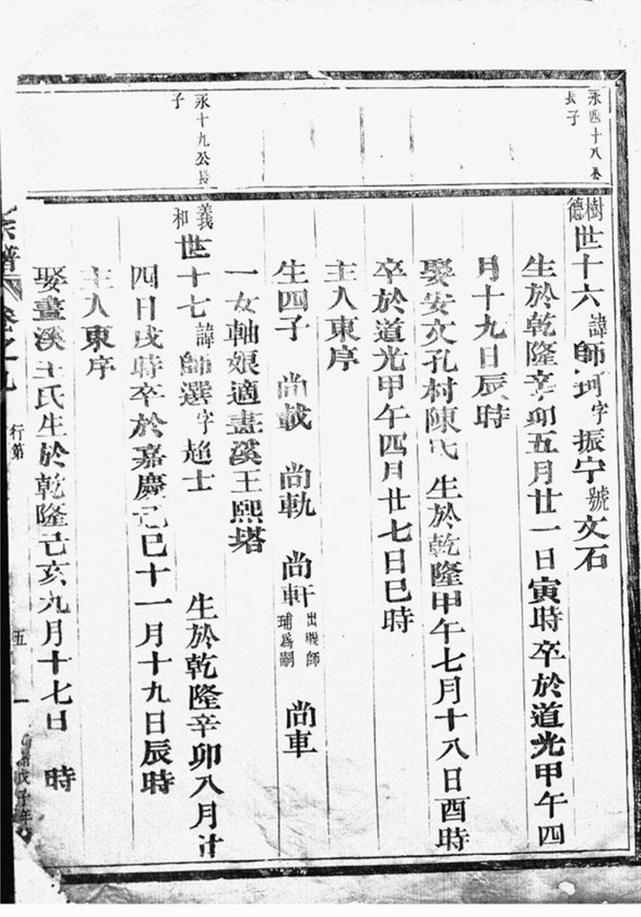 永四十八公
長子
樹德
世十六諱師珂字振宁號文石
生於乾隆辛卯五月廿一日寅時卒於道光甲午四
月十九日辰時
娶安文孔村陳氏 生於乾隆甲午七月十八日酉時
卒於道光甲午四月廿七日巳時
主入東序
生四子 尚載 尚軌 尚軒出繼師㻉為嗣 尚車
一女軸娘適畫溪王熙塔
永十九公長
子
義和
世十七諱師選字超士 生於乾隆辛卯八月廿
四日戌時卒於嘉慶己巳十一月十九日辰時
主入東序
娶畫溪王氏生於乾隆己亥九月十七日 時
宗譜 卷之九 行第 五
戊子年